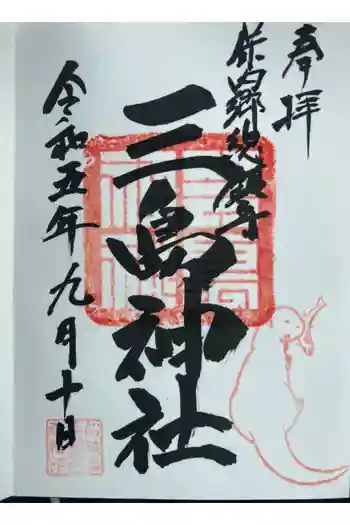 奉拝
保内郷総鎮守
三島神社
令和五年九月十日